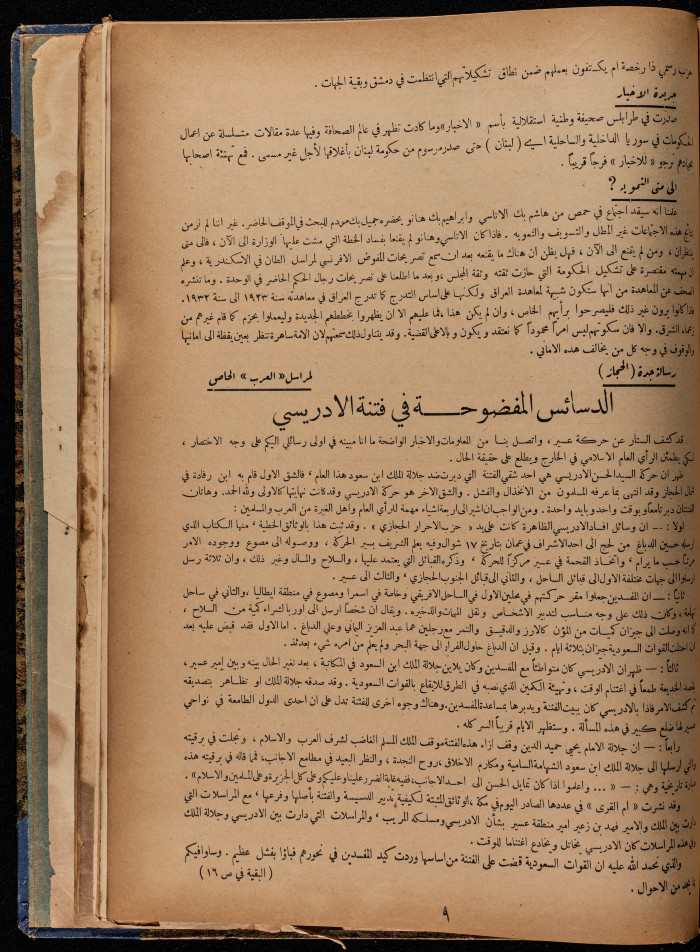 حزب رسمي ذا رخصة ام يكتفون بعملهم ضمن نطاق تشكيلاتهم التي انتظمت في دمشق وبقية الجهات .
جريدة الاخبار
صدرت في طرابلس صحيفة وطنية استقلالية بأسم « الاخبار» وما كادت تظهر في عالم الصحافة وفيها عدة مقالات متسلسلة عن اعمال
الحكومات في سوريا الداخلية والساحلية اي ( لبنان ) حتى صدر مرسوم من حكومة لبنان بأغلاقها لأجل غير مسمى . فمع تهنئة اصحابها
نرجو « للاخبار » فرجاً قريباً .
الى متى التمويه ؟
علمنا انه سيعقد اجتماع في حمص من هاشم بك الاتاسي وابراهيم بك هنانو يحضره جميل بك مردم للبحث في الموقف الحاضر . غير اننا لم نر من
هذه الاجتماعات غير المطل والتسويف والتمويه . فاذا كان الاتاسي وهنانو لم يقنعا بفساد الخطة التي مشت عليها الوزارة الى الآن ، فالى متى
ينظران ، ومن لم يقنع الى الآن ، فهل يظن ان هناك ما يقنعه بعد ان سمع تصريحات المفوض الافرنسي لمراسل الطان في الاسكندرية ، وعلم
ان مهمته مقتصرة على تشكيل الحكومة التي حازت ثقته وثقة المجلس ، وبعد ما اطلعنا على تصريحات رجال الحكم الحاضر في الوحدة . وما تنشره
الصحف عن المعاهدة من انها ستكون شبيهة لمعاهدة العراق ولكنها على اساس التدرج كما تدرج العراق في معاهدته سنة ١٩٢٣ الى سنة ١٩٣٢.
فاذا كانوا يرون غير ذلك فليصرحوا برأيهم الخاص ، وان لم يكن هذا ، فما عليهم الا ان يظهروا بخططهم الجديدة وليعملوا بحزم كما قام غيرهم من
زعماء الشرق. والا فان سكوتهم ليس امراً محموداً كما نعتقد ويكون وبالا على القضية. وقد يتناول ذلك سمعتهم لان الامة ساهرة تنظر بعين يقظة الى امانيها
والوقوف في وجه كل من يخالف هذه الاماني .
رسالة جدة ( الحجاز )
لمراسل « العرب » الخاص
الدسائس المفضوحة في فتنة الادريسي
قد كشف الستار عن حركة عسير ، واتصل بنا من المعلومات والاخبار الواضحة ما انا مبينه في اولى رسائلي اليكم على وجه الاختصار ،
لكي يطمئن الرأي العام الاسلامي في الخارج ويطلع على حقيقة الحال .
ظهر ان حركة السيد الحسن الادريسي هي احد شقي الفتنة التي دبرت ضد جلالة الملك ابن سعود هذا العام ، فالشق الاول قام به ابن رفادة في
شمال الحجاز وقد انتهى بما عرفه المسلمون من الانخذال والفشل . والشق الآخر هو حركة الادريسي وقد كانت نهايتها كالاولى ولله الحمد. وهاتان
الفتنتان دبرتا معاً وبوقت واحد وبايد واحدة . ومن الواجب ان اشير الى اربعة اشياء مهمة للرأي العام واهل الغيرة من العرب والمسلمين :
اولا : — ان وسائل افساد الادريسي الظاهرة كانت على يد « حزب الاحرار الحجازي » . وقد ثبت هذا بالوثائق الخطية ، منها الكتاب الذي
ارسله حسين الدباغ من لحج الى احد الاشراف في عمان بتاريخ ١٧ شوال وفيه يعلم الشريف بسير الحركة ، ووصوله الى مصوع ووجوده الامر
مرتباً حسب ما يرام ، واتخاذ القحمة في عسير مركزاً للحركة ، وذكره القبائل التي يعتمد عليها ، والسلاح والمال وغير ذلك ، وان ثلاثة رسل
ارسلوا الى جهات مختلفة الاول الى قبائل الساحل ، والثاني الى قبائل الجنوب الحجازي ، والثالث الى عسير .
ثانياً : — ان المفسدين جعلوا مقر حركتهم في محلين الاول في الساحل الافريقي وخاصة في اسمرا ومصوع في منطقة ايطاليا ، والثاني في ساحل
تهامة ، وكان ذلك على وجه مناسب لتدبير الاشخاص ونقل المهمات والذخيره . ويقال ان شخصاً ارسل الى اوربا لشراء كمية من السلاح ،
كما انه وصلت الى جيزان كميات من المؤن كالارز والدقيق والتمر مع رجلين هما عبد العزيز اليماني وعلي الدباغ . اما الاول فقد قبض عليه بعد
ان احتلت القوات السعودية جيزان بثلاثة ايام . وقيل ان الدباغ حاول الفرار الى جهة البحر ولم يعلم من امره شيء بعدئذ .
ثالثاً : — ظهر ان الادريسي كان متواطئاً مع المفسدين وكان يلاين جلالة الملك ابن السعود في المكاتبة ، بعد تغير الحال بينه وبين امير عسير ،
بقصد الخديعة طمعاً في اغتنام الوقت ، وتهيئة الكمين الذي نصبه في الطرق للايقاع بالقوات السعودية . وقد صدقه جلالة الملك او تظاهر بتصديقه
ثم كشف الامر فاذا بالادريسي كان يبيت الفتنة ويدبرها بمساعدة المفسدين. وهناك وجوه اخرى للفتنة تدل على ان احدى الدول الطامعة في نواحي
عسير لها ضلع كبير في هذه المسألة . وستظهر الايام قريباً السر كله .
رابعاً : — ان جلالة الامام يحيى حميد الدين وقف ازاء هذه الفتنة موقف الملك المسلم الغاضب لشرف العرب والاسلام ، وتجلت في برقيته
التي ارسلها الى جلالة الملك ابن سعود الشهامة السامية ومكارم الاخلاق ، روح النجدة ، والنظر البعيد في مطامع الاجانب، فما قاله في برقيته هذه
عبارة تاريخية وهي : — « ... واعلموا اذا كان تمايل الحسن الى احد الاجانب، ففيه غاية الضرر علينا وعليكم وعلى كل الجزيرة وعلى المسلمين والاسلام» .
وقد نشرت « ام القرى » في عددها الصادر اليوم في مكة ، الوثائق المثبتة لكيفية تدبير الدسيسة والفتنة بأصلها وفرعها ، مع المراسلات التي
دارت بين الملك والامير فهد بن زعير امير منطقة عسير بشأن الادريسي ومسلكه المريب ، والمراسلات التي دارت بين الادريسي وجلالة الملك
وفي هذه المراسلات كان الادريسي يخاتل ويخادع اغتناما للوقت .
والذي نحمد الله عليه ان القوات السعودية قضت على الفتنة من اساسها وردت كيد المفسدين في نحورهم فباؤا بفشل عظيم . وسأوافيكم
بما يجد من الاحوال .
( البقية في ص ١٦ )
٩